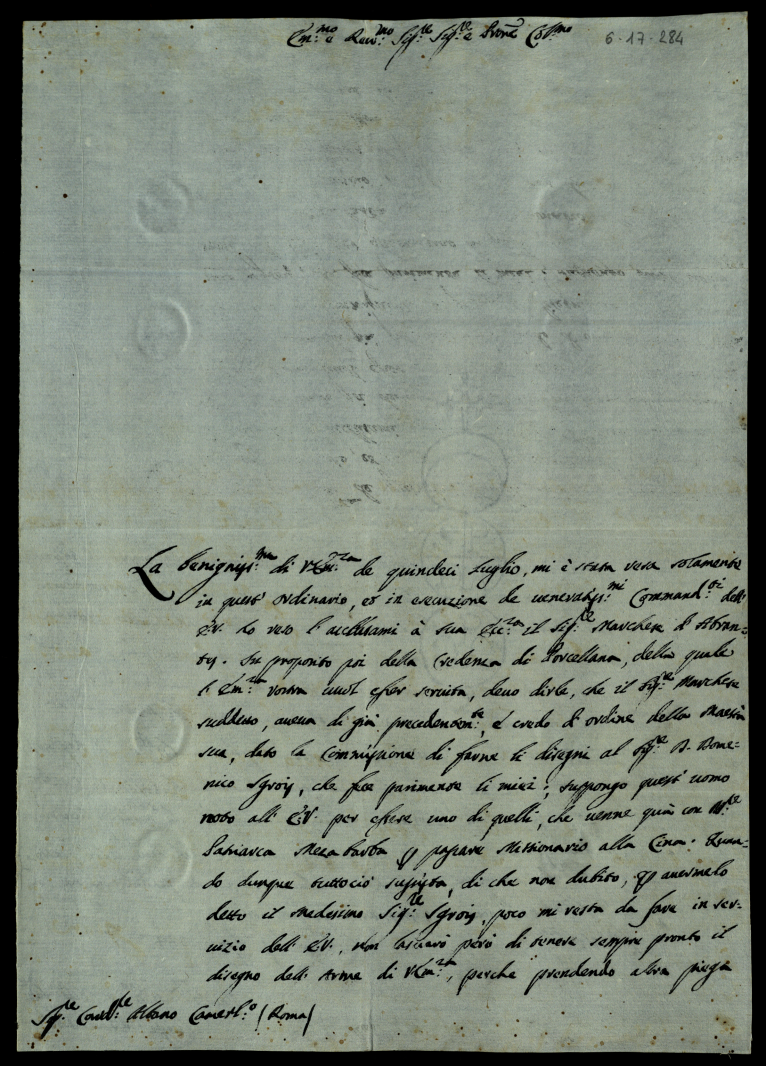 Em:mo e Rev:mo Sig:re Sig:re e Prone Col:mo
6-17-284
La benigniss:ma di V.Em:za de quindeci Luglio, mi è stata resa solamente
in quest' ordinario, et in esecuzione de veneratiss:mi Command:ti dell'
E.V. ho reso l'acclusami à sua Ecc:za il Sig:re Marchese d'Abran-
tes. Su proposito poi della Credenza di Porcellana, della quale
l'Em:za Vostra vuol esser servita, devo dirle, che il Sig:re Marchese
suddetto, aveva di già precedentem:te, e credo d'ordine della Maestà
sua, dato la Commissione di farne li disegni al Sig:re D. Dome-
nico Sgroij, che fece parimente li miei; suppongo quest' uomo
noto all' E.V. per essere uno di quelli, che venne quà con M:re
Patriarca Mezabarba p passare Missionario alla Cina: Quan-
do dunque tuttociò sussista, di che non dubito, p avermelo
detto il medesimo Sig:re Sgroij, poco mi resta da fare in ser-
vizio dell' E.V., non lasciarò però di tenere sempre pronto il
disegno dell' Arma di V.Em:za, perche prendendo altra piega
Sig:re Card:le Albano Camerl:o (Roma)